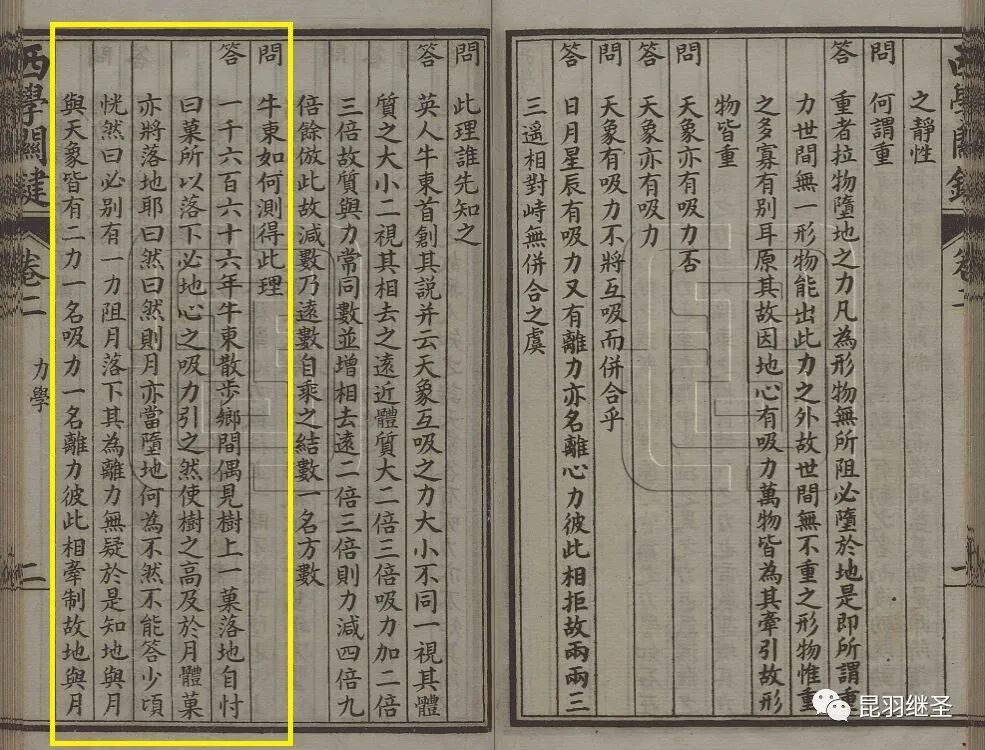 之靜性
問 何謂重
答 重者拉物墮地之力凡為形物無所阻必墮於地是即所謂重
力世間無一形物能出此力之外故世間無不重之形物惟重
之多寡有別耳原其故因地心有吸力萬物皆為其牽引故形
物皆重
問 天象亦有吸力否
答 天象亦有吸力
問 天象有吸力不將互吸而併合乎
答 日月星辰有吸力又有離力亦名離心力彼此相拒故兩兩三
三遙相對峙無併合之虞
問 此理誰先知之
答 英人牛東首創其説并云天象互吸之力大小不同一視其體
質之大小二視其相去之遠近體質大二倍三倍吸力加二倍
三倍故質與力常同數並增相去遠二倍三倍則力減四倍九
倍餘倣此故減數乃遠數自乘之結數一名方數
問 牛東如何測得此理
答 一千六百六十六年牛東散步鄉間偶見樹上一菓落地自忖
曰菓所以落下必地心之吸力引之然使樹之高及於月體菓
亦將落地耶曰然曰然則月亦當墮地何為不然不能答少頃
恍然曰必別有一力阻月落下其為離力無疑於是知地與月
與天象皆有二力一名吸力一名離力彼此相牽制故地與月
西學關鍵 卷二 力學 二
昆羽继圣